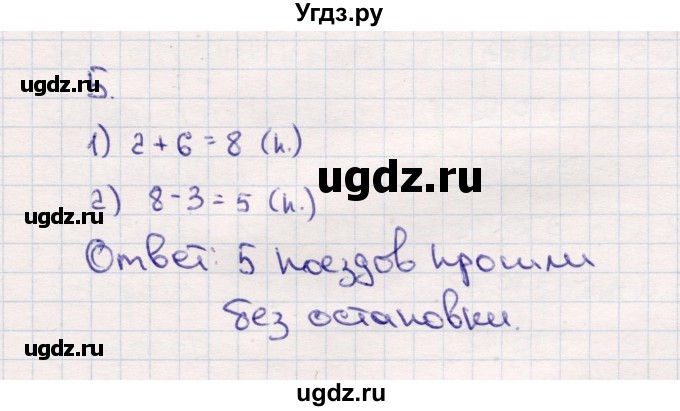 Угдз.ру
ugdz.ru
5.
1) 2+6=8 (п.)
ugdz.ru
2) 8-3=5 (п.)
ugdz.ru
Ответ: 5 поездов прошли
без остановки.
ugdz.ru
ugdz.ru